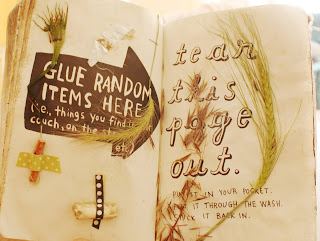 GLUE RANDOM
ITEMS HERE
(i.e., things you find
couch, on the st
etc
tear
this
page
out.
PUT IT IN YOUR POCKET.
PUT IT THROUGH THE WASH.
STICK IT BACK IN.